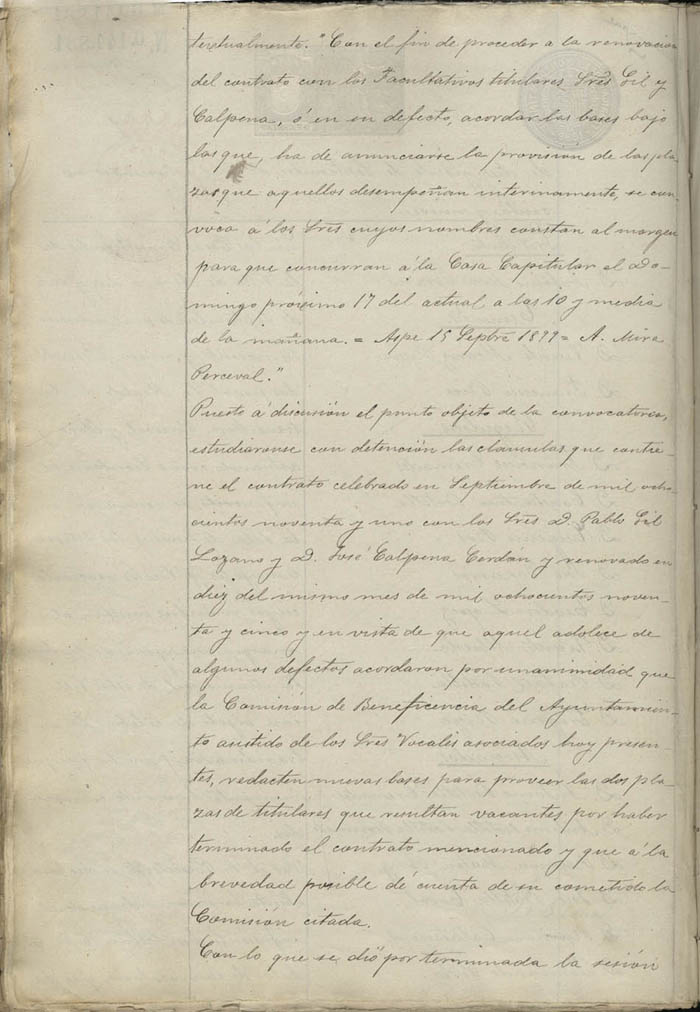 textualmente. "Con el fin de proceder a la renovacion
del contrato con los Facultativos titulares Sres Gil y
Calpena, ó en su defecto, acordar las bases bajo
las que, ha de anunciarse la provisión de las pla-
zas que aquellos desempeñan interinamente, se con-
voca á los Sres cuyos nombres constan al margen
para que concurran á la Casa Capitular el Do-
mingo próximo 17 del actual a las 10 y media
de la mañana. = Aspe 15 Septre 1899 = A. Mira
Perceval."
Puesto á discusión el punto objeto de la convocatoria,
estudiaronse con detención las clausulas que contie-
ne el contrato celebrado en Septiembre de mil ocho-
cientos noventa y uno con los Sres D. Pablo Gil
Lozano y D. José Calpena Cerdán y renovado en
diez del mismo mes de mil ochocientos noven-
ta y cinco y en vista de que aquel adolece de
algunos defectos acordaron por unanimidad que
la Comisión de Beneficencia del Ayuntamien-
to asistido de los Sres Vocales asociados hoy presen-
tes, redacten nuevas bases para proveer las dos pla-
zas de titulares que resultan vacantes por haber
terminado el contrato mencionado y que á la
brevedad posible dé cuenta de su cometido la
Comisión citada.
Con lo que se dió por terminada la sesión